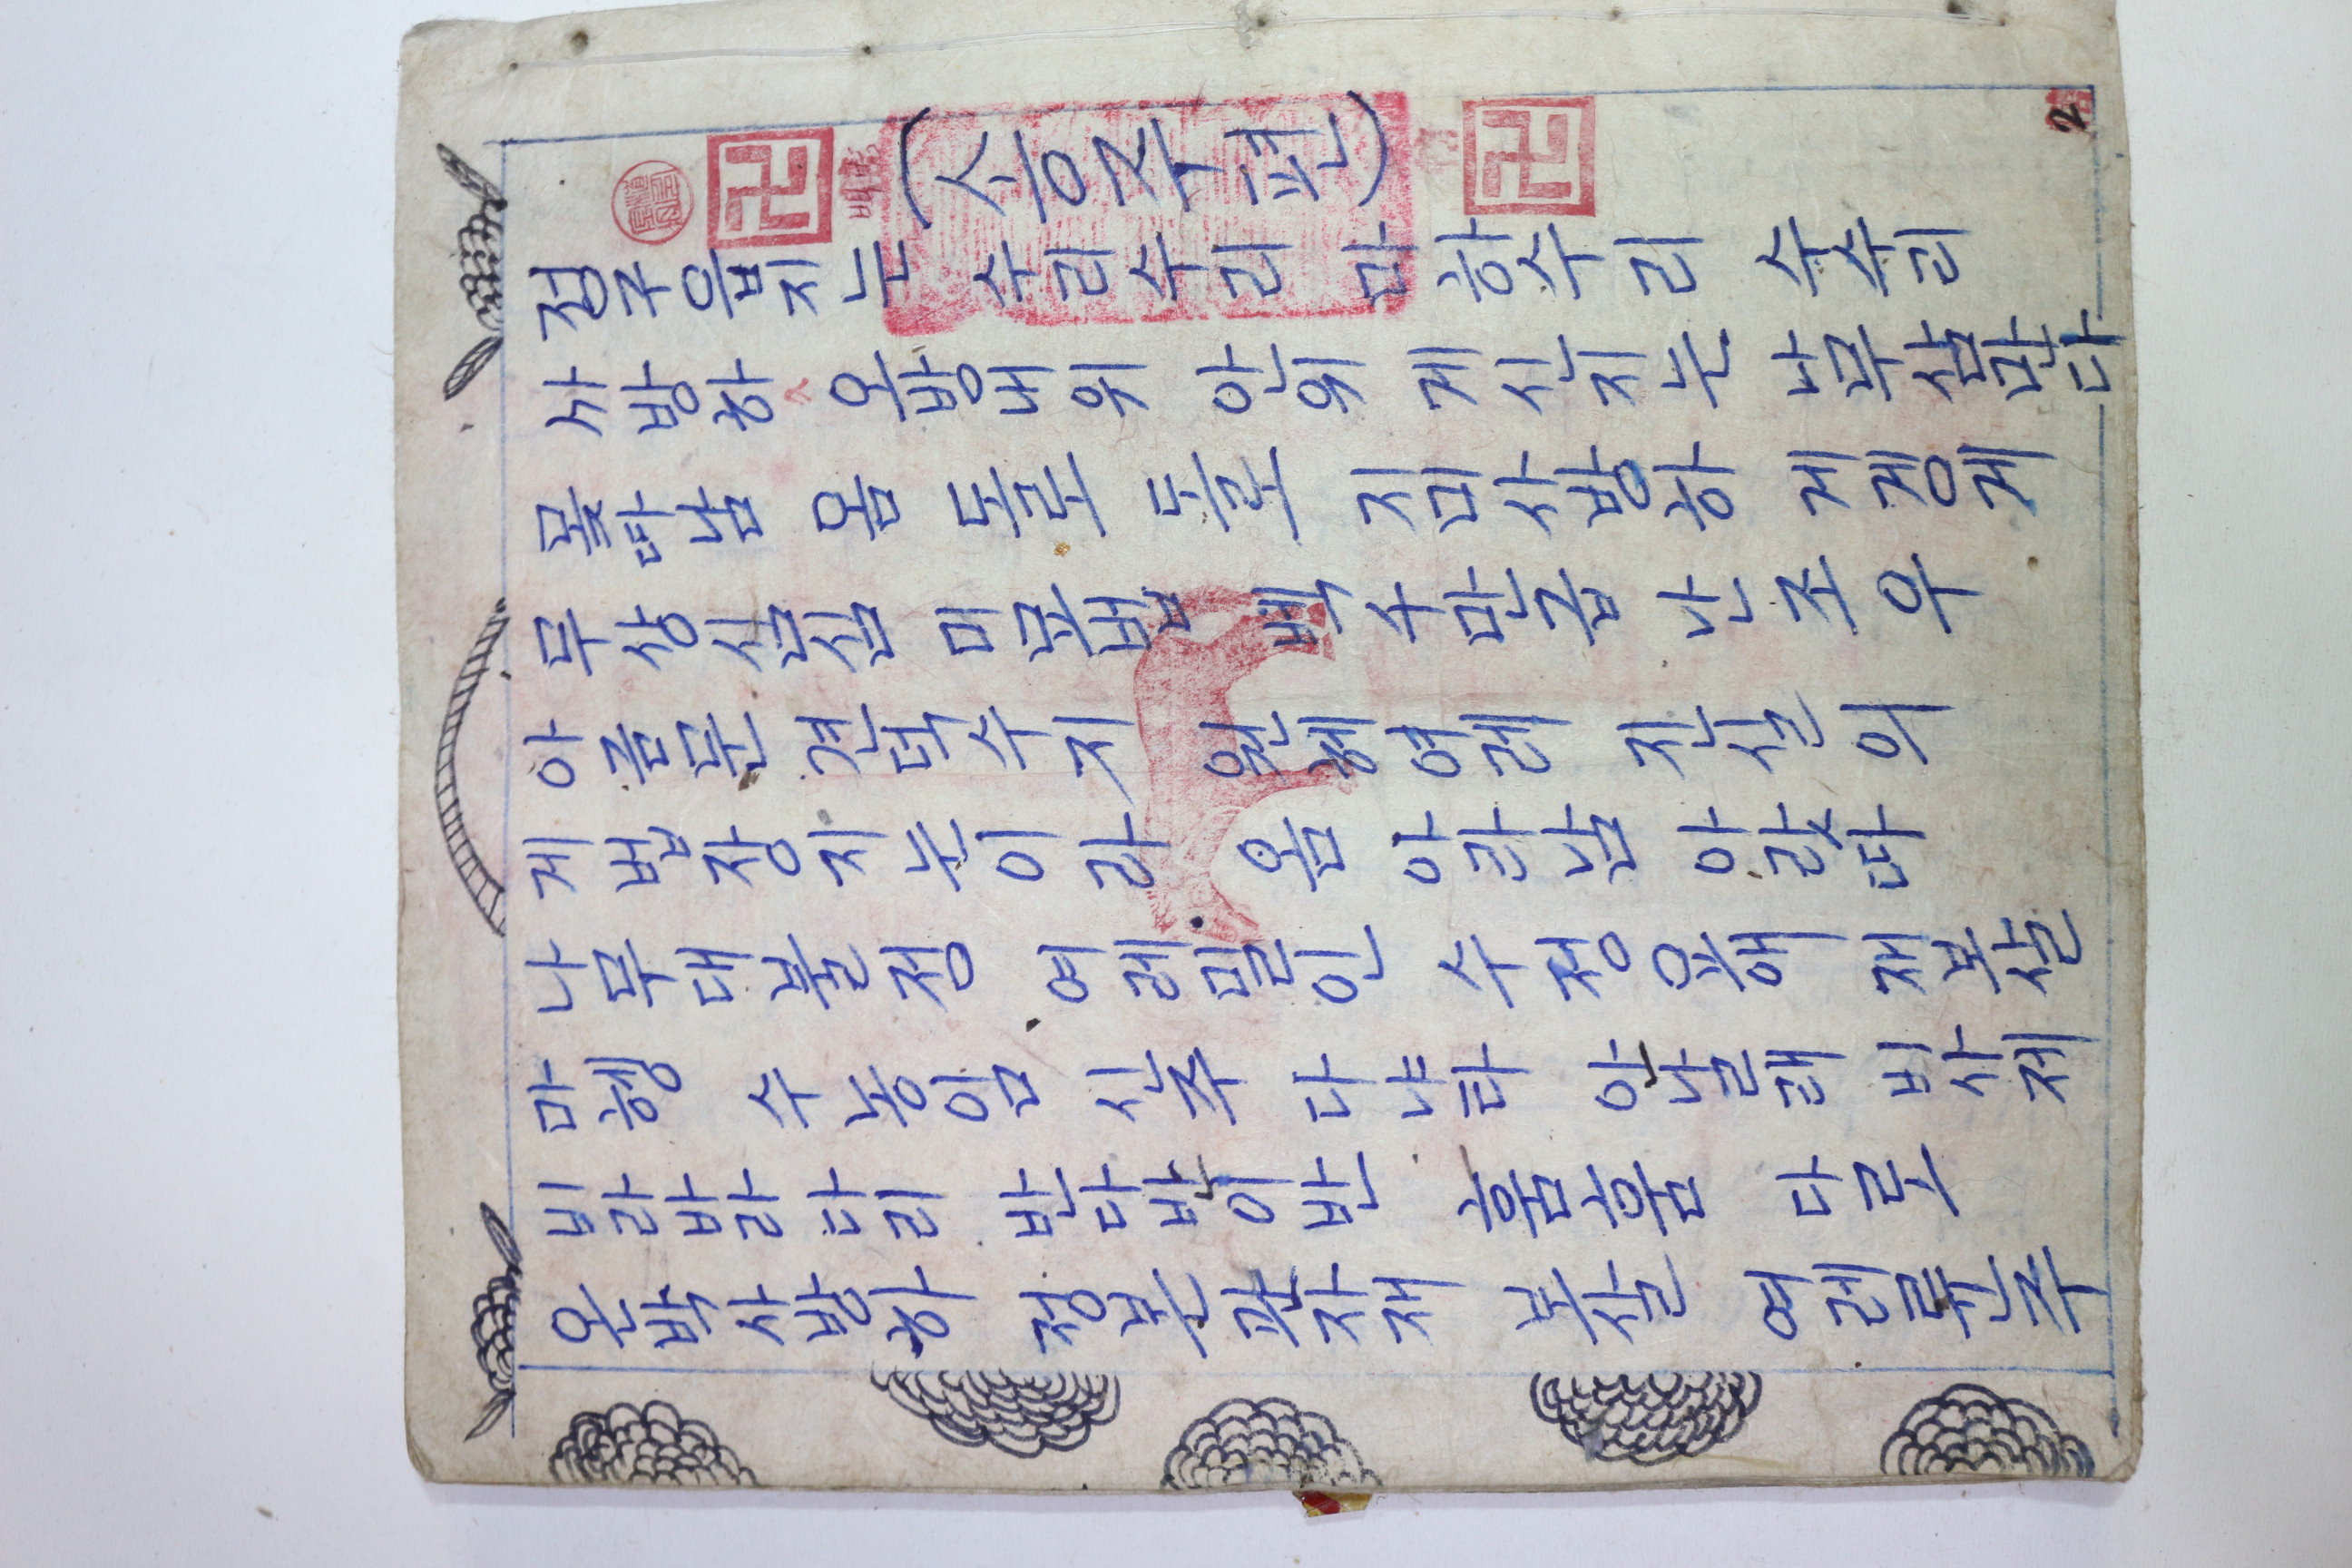 (승주편)
정구읍지는 수리수리 마하수리 수수리
사방하 오방내위 안위 게신지는 나무삼만다
못따남 옴 도로 도로 지미사방하 게겡게
무상심심 미묘법 백수만급 난조우
아금문 견덕수지 원헤여레 진실의
게법장지눈이라 옴 아라남 아랏따
나무대불정 여레밀인 수정요애 재보살
마헹 수농임 신주 다냐타 안날래 비사제
비라바라다리 반다반이반 훔훔 다로
온박사방하 정본관자재 보살 여레륙주
2